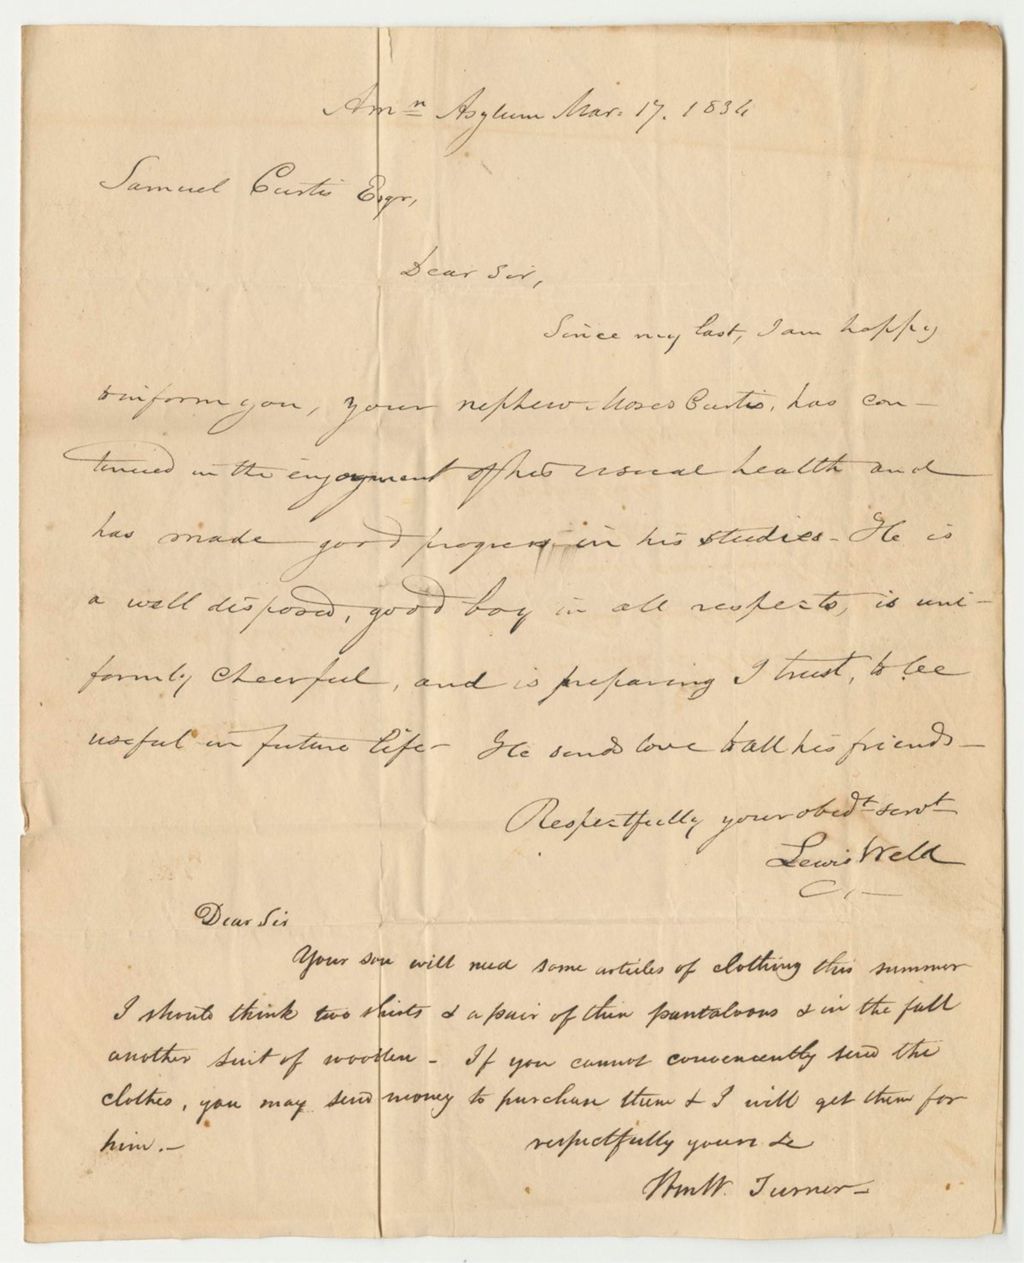 Amn Asylum Mar. 17. 1834
Samuel Curtis Esqr,
Dear Sir,
Since my last, I am happy
to inform you, your nephew Moses Curtis, has con-
tinued in the enjoyment of his usual health and
has made good progress in his studies - He is
a well disposed, good boy in all respects, is uni-
formly cheerful, and is preparing I trust, to be
useful in future life - He sends love to all his friends -
Respectfully your obedt servt
Lewis Weld
Dear Sir
Your son will need some articles of clothing this summer
I should think two shirts & a pair of thin pantaloons & in the fall
another suit of woollen - If you cannot conveniently send the
clothes, you may send money to purchase them & I will get them for
him. -
respectfully yours &c
Wm W. Turner -